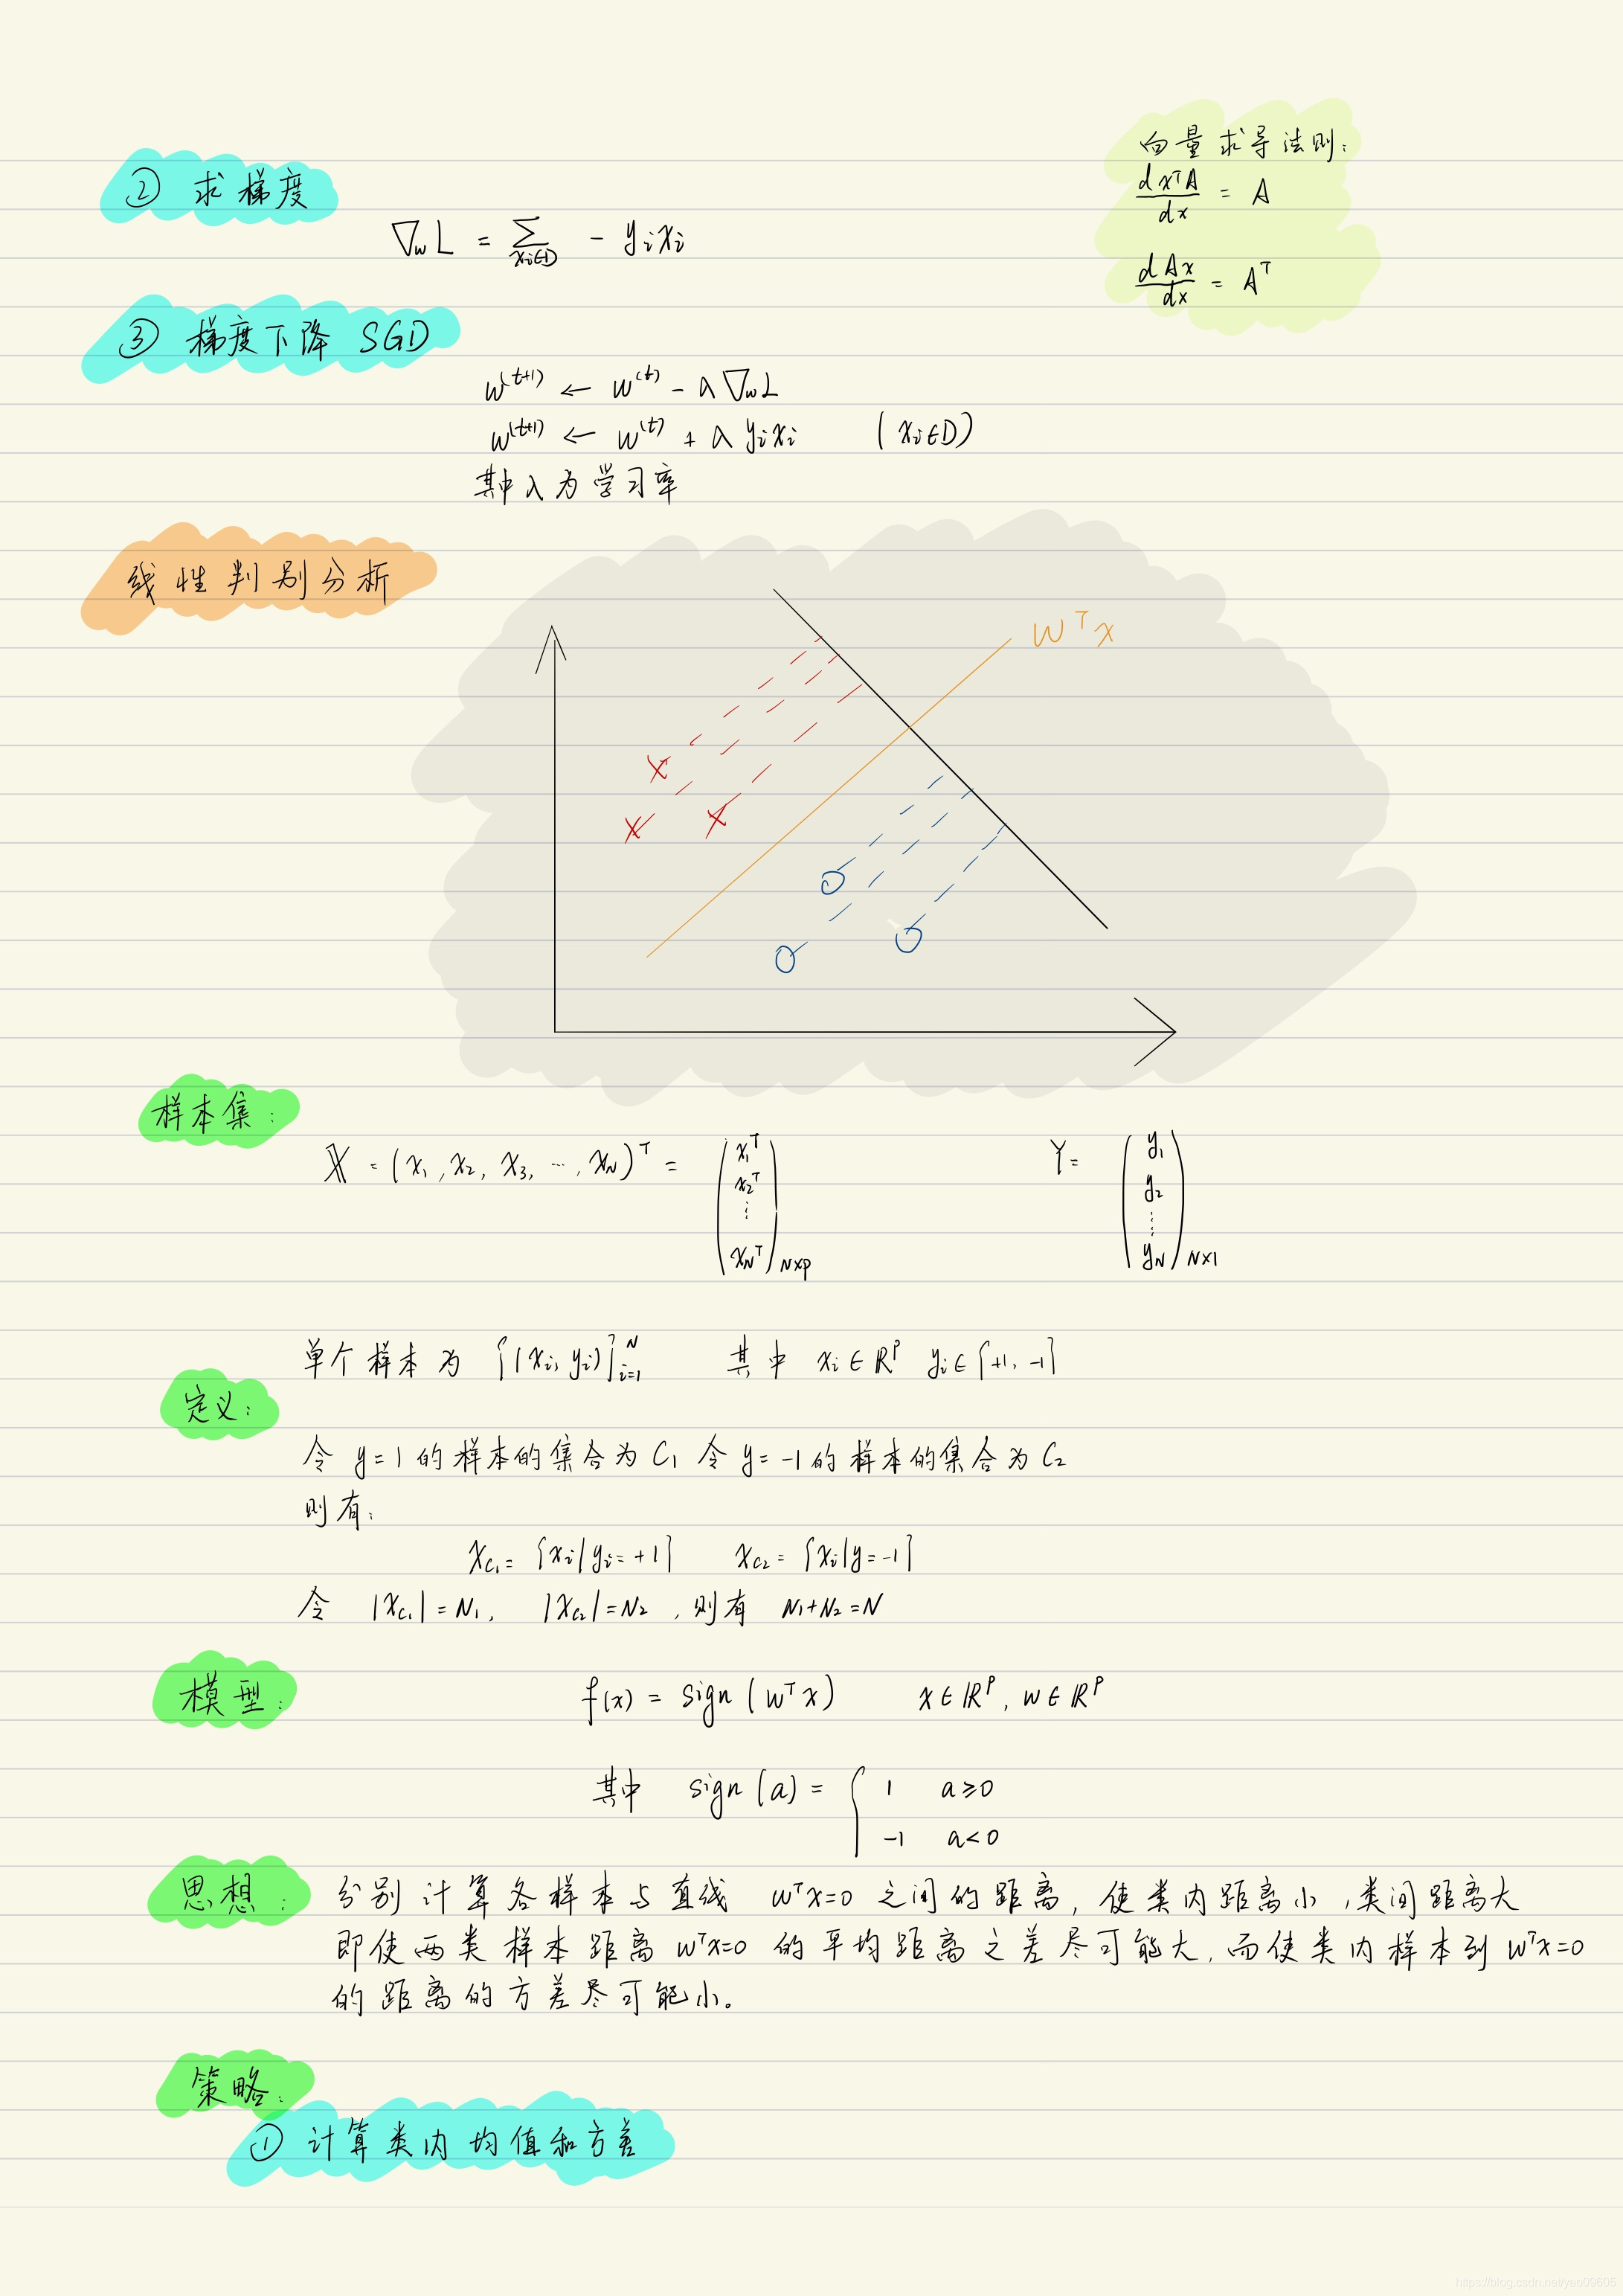 向量求导法则：
dxᵀA/dx = A
dAx/dx = Aᵀ
② 求梯度
∇wL = Σ_{xi∈D} - yixi
③ 梯度下降 SGD
w⁽ᵗ⁺¹⁾ ← w⁽ᵗ⁾ - λ∇wL
w⁽ᵗ⁺¹⁾ ← w⁽ᵗ⁾ + λ yixi (xi∈D)
其中λ为学习率
线性判别分析
Wᵀx
样本集：
X = (x1, x2, x3, …, xN)ᵀ = (x1ᵀ x2ᵀ ⋮ xNᵀ)N×p Y = (y1 y2 ⋮ yN)N×1
单个样本为 {(xi, yi)}ᴺi=1 其中 xi∈ℝᵖ yi∈{+1, -1}
定义：
令 y=1 的样本的集合为 C1 令 y=-1 的样本的集合为 C2
则有：
xC1 = {xi|yi=+1} xC2 = {xi|y=-1}
令 |xC1|=N1, |xC2|=N2, 则有 N1+N2=N
模型：
f(x) = sign(wᵀx) x∈ℝᵖ, w∈ℝᵖ
其中 sign(a) = { 1 a≥0
-1 a<0
思想：分别计算各样本与直线 wᵀx=0 之间的距离, 使类内距离小, 类间距离大
即使两类样本距离 wᵀx=0 的平均距离之差尽可能大, 而使类内样本到 wᵀx=0
的距离的方差尽可能小。
策略：
① 计算类内均值和方差
https://blog.csdn.net/yao09605